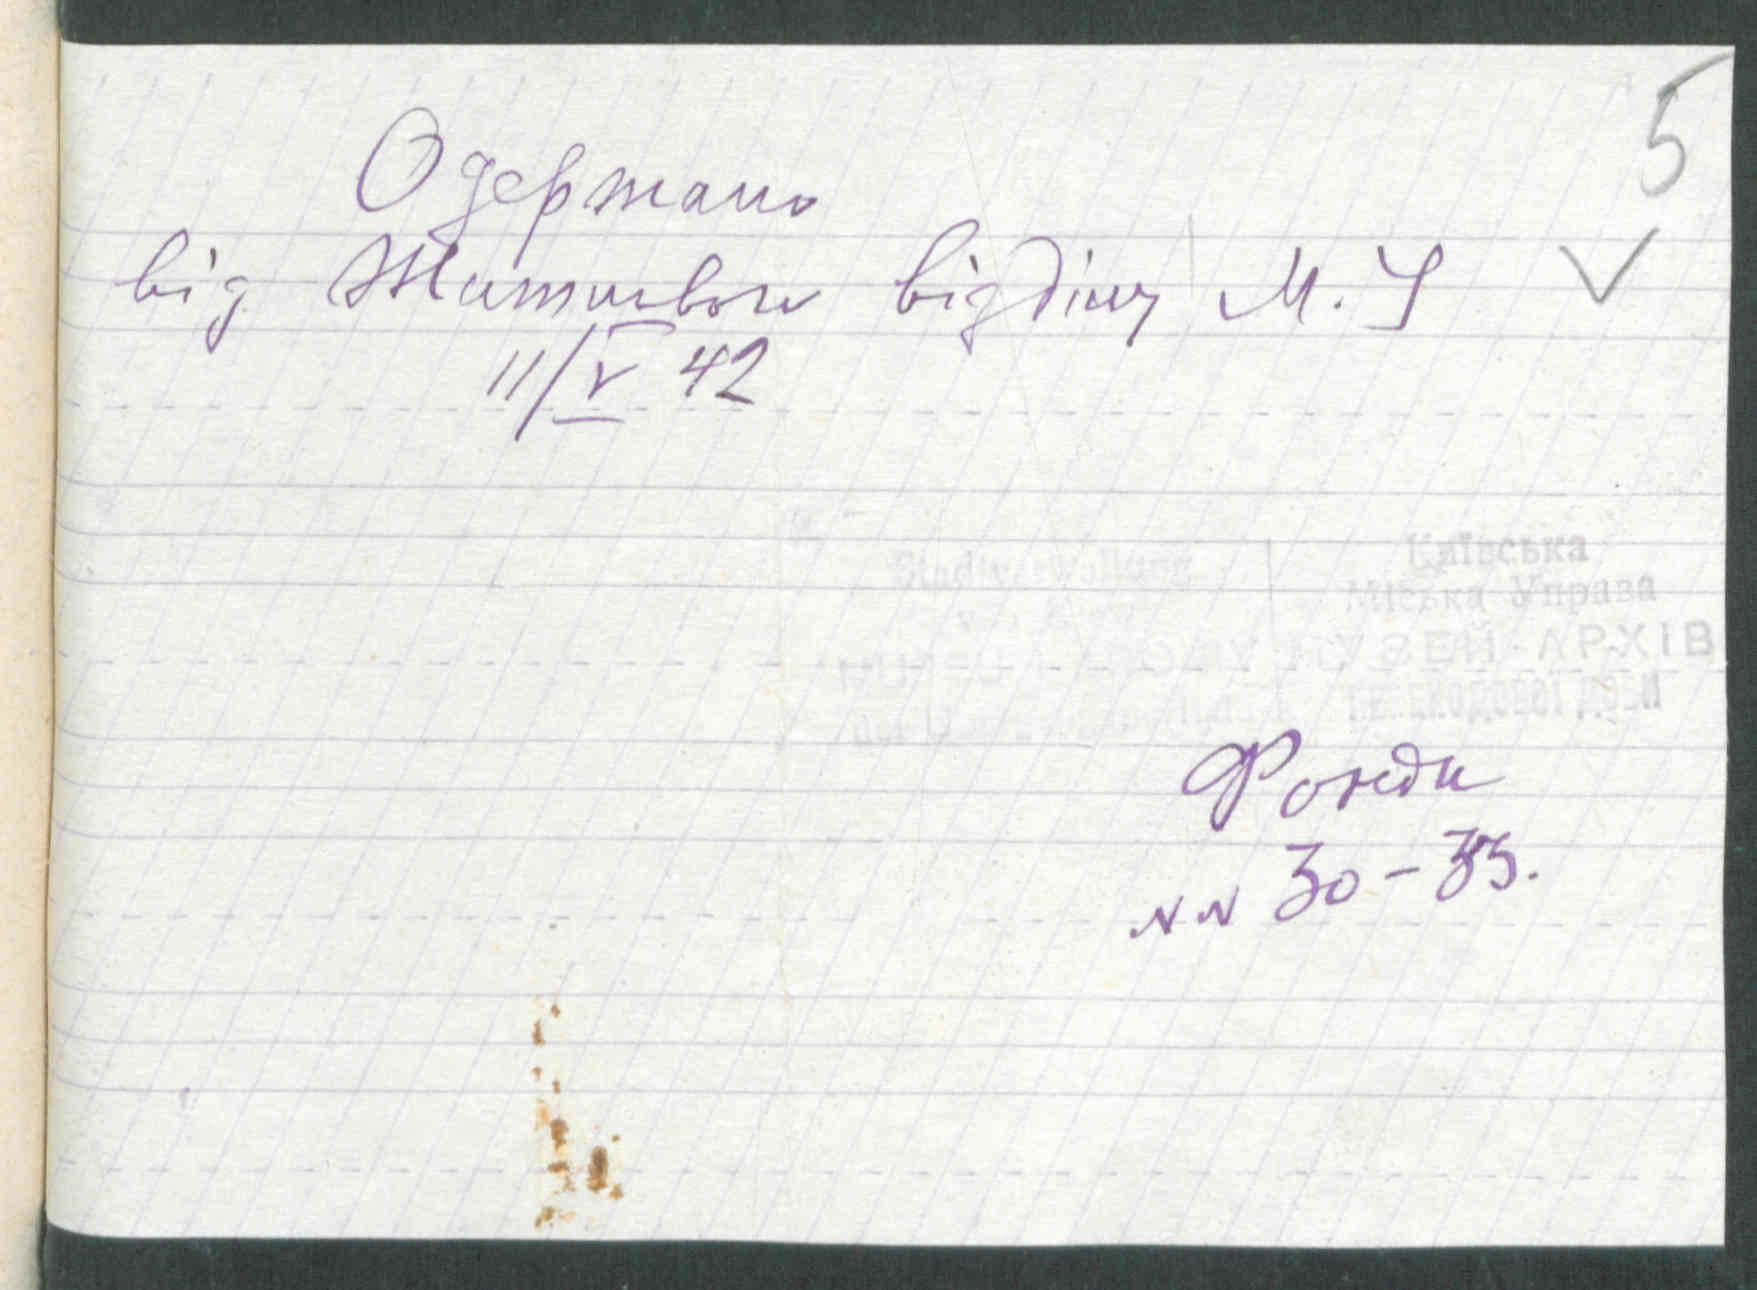 5
Одержано
від Житлового відділу М. У
11/V 42
Stadtverwaltung
Київська
Міська Управа
МУЗЕЙ-АРХІВ
переходової доби
Фонди
NN 30-35.